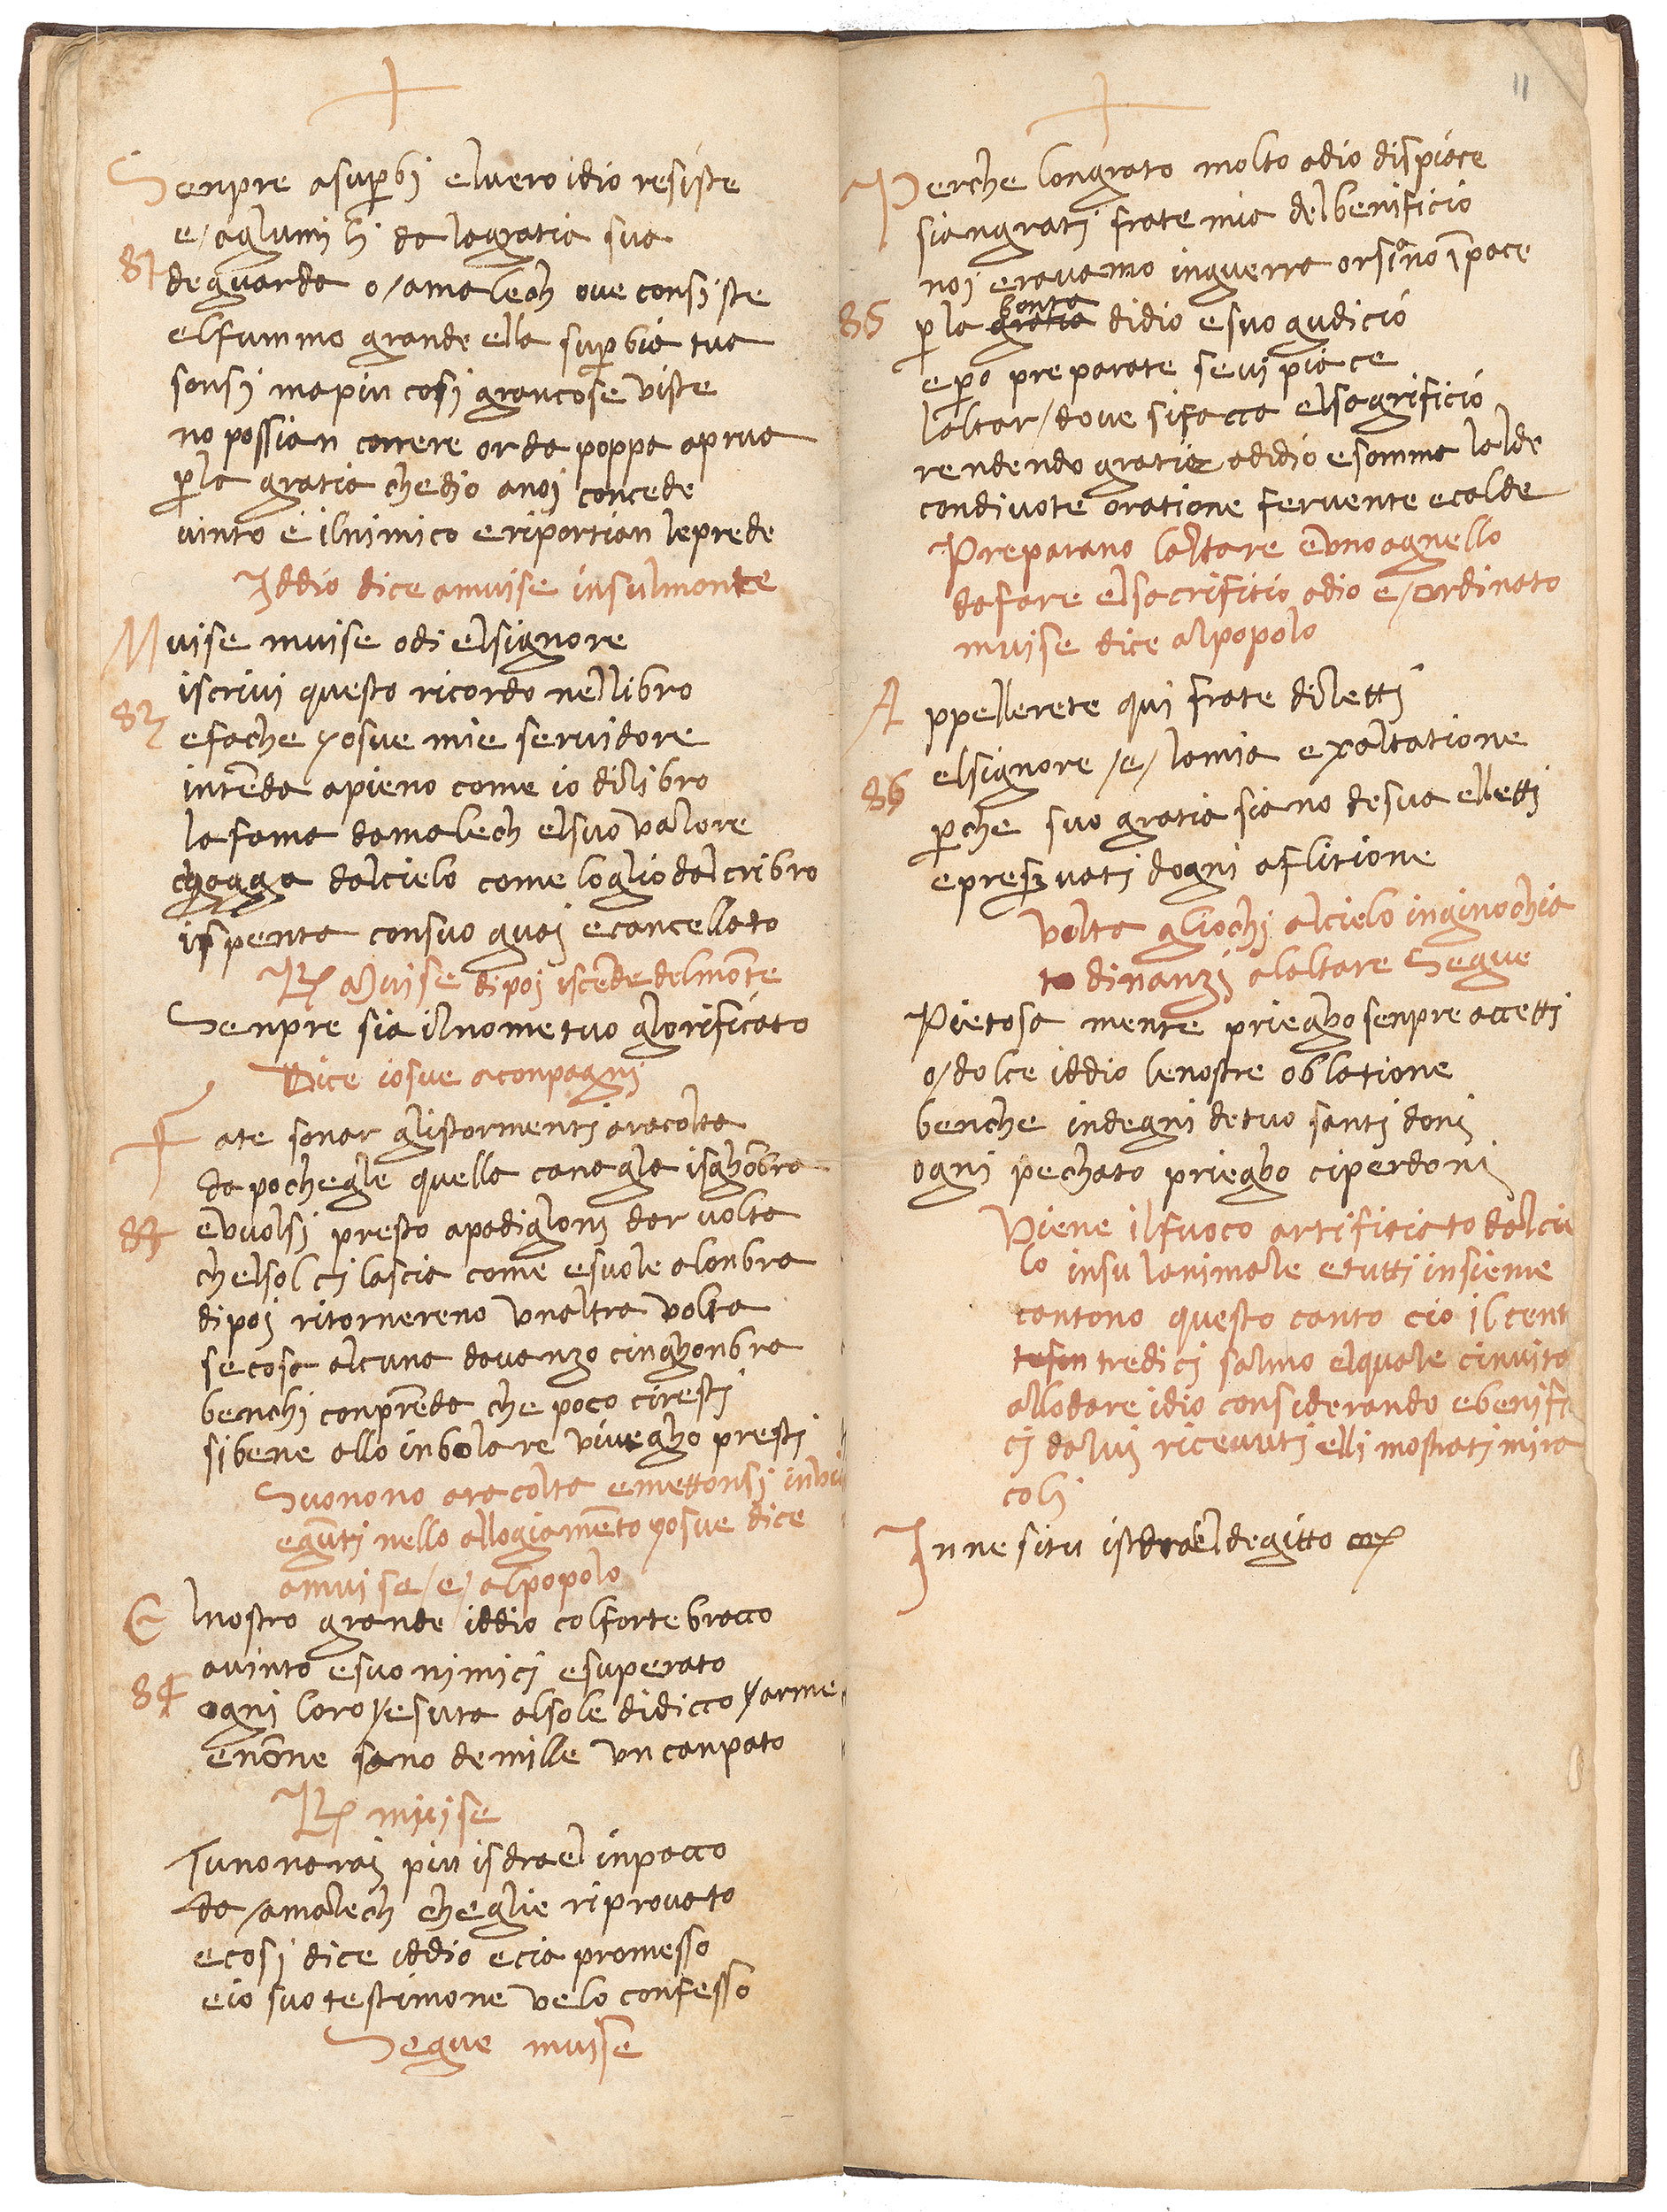 Senpre asuperbi eluero idio resiste
e/aglumili da lagratia sua
81
deguarda o/amalech oue consiste
elfummo grande ella superbia tua
sonsi mapiu cosi grancose uiste
no possian correre orda poppa aprua
perla gratia chedio anoi concede
uinto e ilnimico eriportian leprede
Iddio dice amuise insulmonte
Muise muise odi elsignore
iscriui questo ricordo nellibro
82
efache yosue mie seruidore
intēda apieno come io dilibro
lafama damalech elsuo ualore
chagga dalcielo come loglio dal cribro
ispenta consuo guai ecancellato
R Muise dipoi iscēde delmōte
Senpre sia ilnome tuo glorificato
Dice iosue aconpagni
Fate sonar glistormenti aracolta
da pochegle quella canagla isghōbra
83
euuolsi presto apadigloni dar uolta
chelsol ci lascia come esuole alonbra
dipoi ritornereno unaltra uolta
secosa alcuna dauanzo cinghonbra
benchi conprēda che poco ciresti
sibene allo inbolare uiuegho presti
Suonono aracolta emettonsi inuia
egiūti nello allogiamēto yosue dice
amuise/e/alpopolo
Elnostro grande iddio colforte bracco
auinto esuo nimici esuperato
84
ogni loro/esuta alsole didicco /arme
enōne sano demille un canpato
R muise
Tunonarai piu isdrael inpacco
da/amalech cheglie riprouato
ecosi dice iddio ecia promesso
eio suo testimone uelo confesso
Segue muise
11
Perche longrato molto adio dispiace
siangrati frate mia delbenificio
noi erauamo inguerra orsiāno īpace
85
bonta
perla gratia didio esuo gudicio
epero preparate seui piace
laltar/doue sifacca elsagrificio
rendendo gratie adidio esomma lalde
condiuote oratione feruente ecalde
Preparano laltare euno agnello
dafare elsacrifitio adio e/ordinato
muise dice alpopolo
Appellerete qui frate diletti
elsignore/e/lamia exaltatione
86
perche suo gratia siano desua elletti
epreseruati dogni aflitione
Volta gliochi alcielo inginochia
to dinanzi alaltare Segue
Pietosa mente priegho senpre accetti
o/dolce iddio lenostre oblatione
benche indegni detuo santi doni
ogni pechato priegho ciperdoni
Viene ilfuoco artifitiato dalcie
lo insu lanimale etutti insieme
cantono questo canto cio il cent
tredici salmo elquale cinuita
allodare idio considerando ebenifi
ci dalui riceuuti elli mostrati mira
coli
Innesitu isdrael degitto